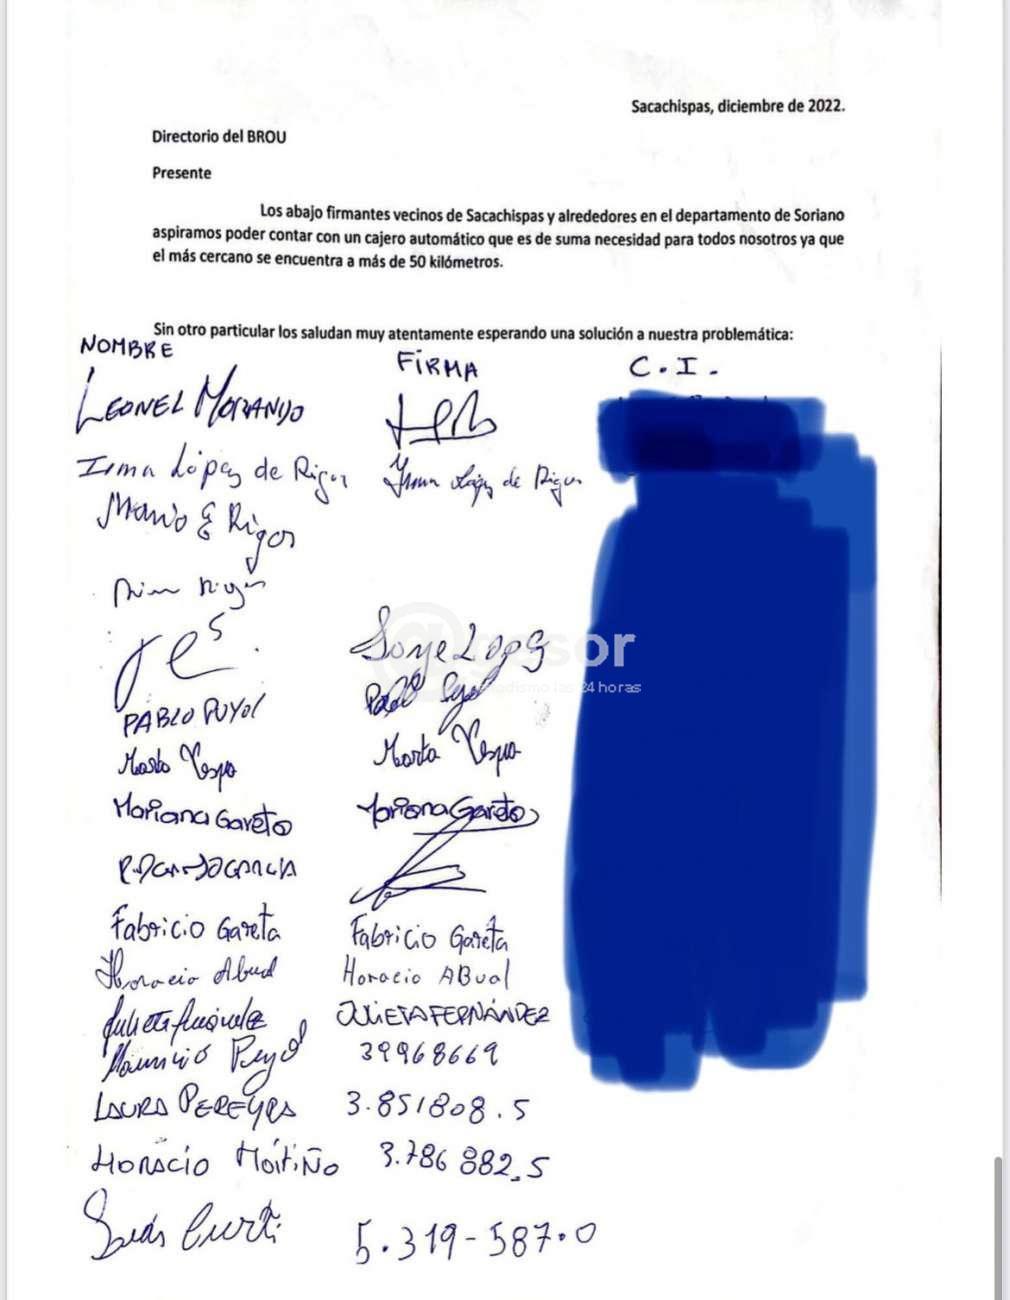 Sacachispas, diciembre de 2022.
Directorio del BROU
Presente
Los abajo firmantes vecinos de Sacachispas y alrededores en el departamento de Soriano
aspiramos poder contar con un cajero automático que es de suma necesidad para todos nosotros ya que
el más cercano se encuentra a más de 50 kilómetros.
Sin otro particular los saludan muy atentamente esperando una solución a nuestra problemática:
NOMBRE FiRMA C.I.
LEONEL MORANDO
Irma López de Rigor Irma López de Rigor
Mario E Rigor
@gesor
periodismo las 24 horas
PABLO PUYOL Pablo Puyol
Marta Vespa Marta Vespa
Mariana Gareto Mariana Gareto
GARCIA
Fabricio Gareta Fabricio Gareta
Horacio Abud Horacio ABual
Julieta JULIETA FERNÁNDEZ
Mauricio Puyol 39968669
LAURA PEREYRA 3.851808.5
HORACIO MOITIÑO 3.786 882_5
Curti 5.319-587.0